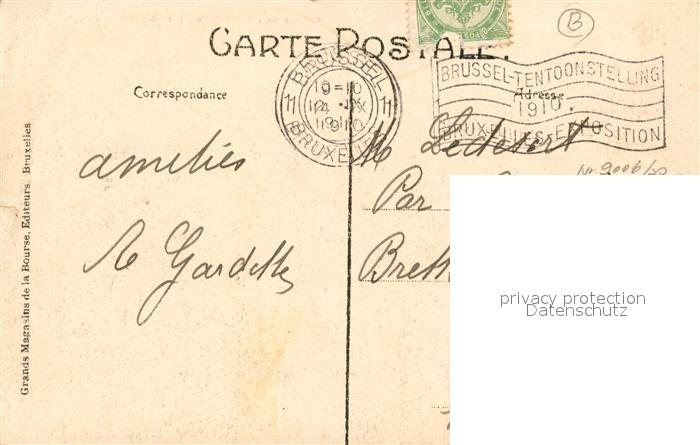 CARTE POSTALE.
B
BRUSSEL
BRUXELLES
11 11
1910
BRUSSEL-TENTOONSTELLING
1910.
BRUXELLES-EXPOSITION
Correspondance
Adresse
amitiés
Gardette
M
Par
Nr. 9006/20
Grands Magasins de la Bourse, Editeurs, Bruxelles
privacy protection
Datenschutz